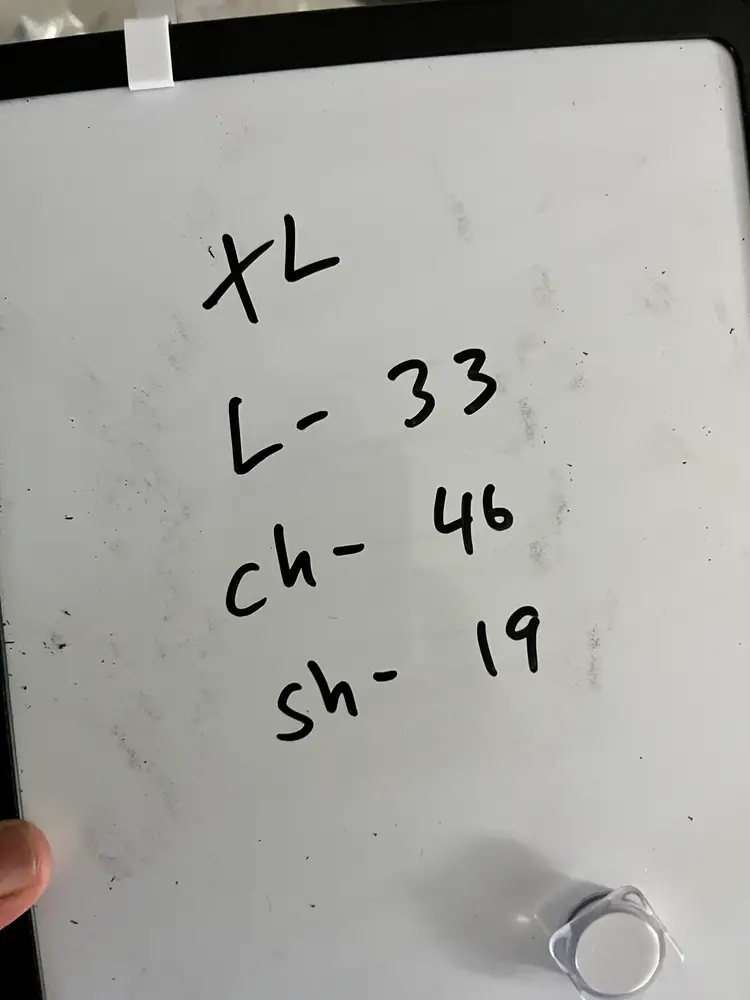 XL
L- 33
ch- 46
Sh- 19